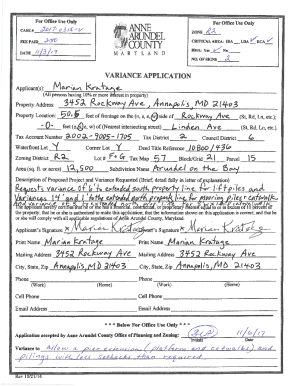 For Office Use Only
CASE # 2017-0316-V
FEE PAID
DATE 11/3/17
ANNE
ARUNDEL
COUNTY
MARYLAND
For Office Use Only
ZONE R2
CRITICAL AREA: IDA LDA RCA
BMA: Yes No
NO. OF SIGNS
VARIANCE APPLICATION
Applicant(s): Marian Kratage
(All persons having 10% or more interest in property)
Property Address: 3452 Rockway Ave, Annapolis, MD 21403
Property Location: 50 feet of frontage on the (n, s, e, w) side of Rockway Ave (St, Rd, Ln, etc.)
-0- feet (n, s, e, w) of (Nearest intersecting street) Linden Ave (St, Rd, Ln, etc.)
Tax Account Number 2002-9005-1705 Tax District 2 Council District 6
Waterfront Lot Y Corner Lot Y Deed Title Reference 10800/436
Zoning District R2 Lot # F+G Tax Map 57 Block/Grid 21 Parcel 15
Area (sq. ft. or acres) 12,500 Subdivision Name Arundel on the Bay
Description of Proposed Project and Variance Requested (Brief, detail fully in letter of explanation)
Requests variance of 6' to extended south property line for lift piles and
variances 14' and 1' to extended property line for mooring piles + catwalk
Applicant's Signature Marian Kratage Applicant's Signature Marian Kratage
Print Name Marian Kratage Print Name Marian Kratage
Mailing Address 3452 Rockway Ave Mailing Address 3452 Rockway Ave
City, State, Zip Annapolis, MD 21403 City, State, Zip Annapolis, MD 21403
Phone (Work) (Home) Phone (Work) (Home)
Cell Phone Cell Phone
Email Address Email Address
* * * Below For Office Use Only * * *
Application accepted by Anne Arundel County Office of Planning and Zoning: 11/6/17
Initials Date
Variance to allow a pier extension (platform and catwalks) and
pilings with less setbacks than required.
Rev 10/21/16